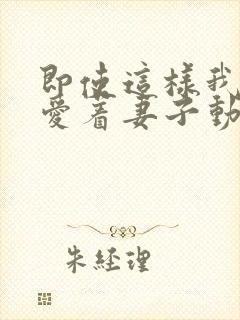 即使這樣我
愛着妻子動
朱經理